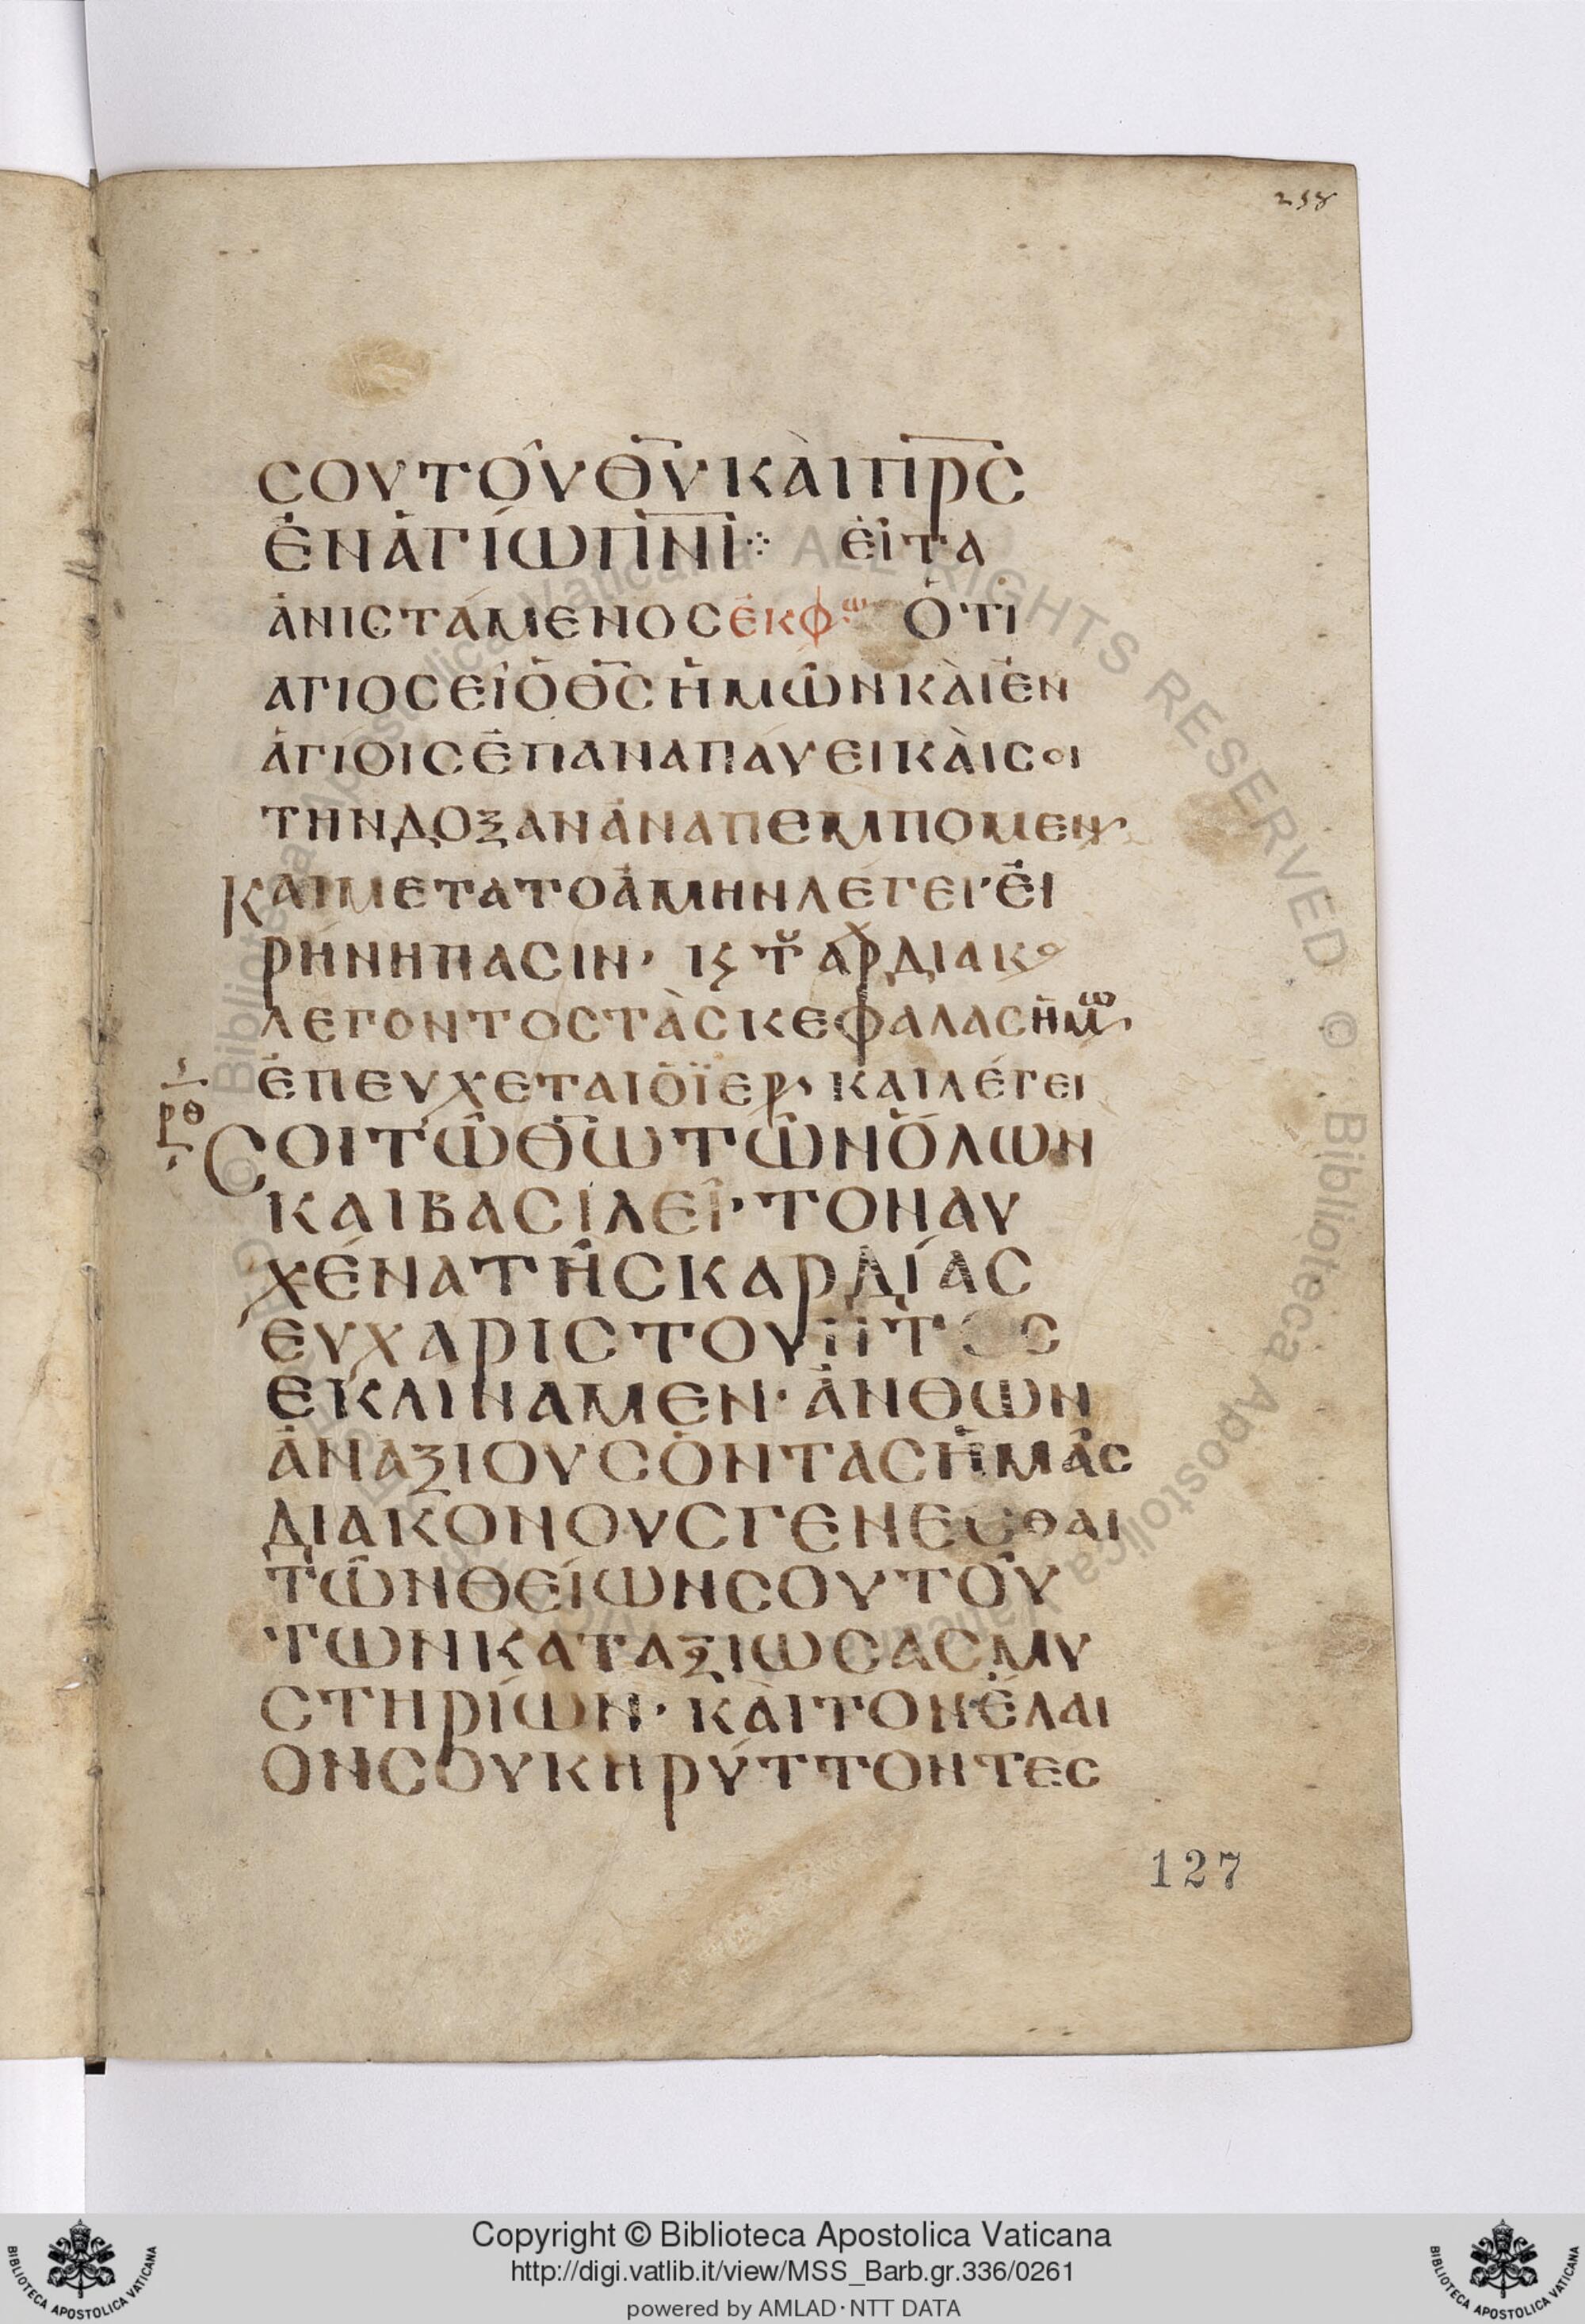 258
ϹΟΥΤΟῦΘ̅Υ̅ΚΑὶΠ̅Ρ̅Ϲ̅
ἘΝἁΓΊΩΠ̅Ν̅Ι̅⁘ ΕἶΤΑ
ἀΝΙϹΤΆΜΕΝΟϹἐΚΦω ὍΤΙ
ΑΓΙΟϹΕἶὁΘ̅Ϲ̅ἡΜῶΝΚΑὶἐΝ
ἁΓΊΟΙϹἐΠΑΝΑΠΑΎΕΙΚΑὶϹΟΙ
ΤΗΝΔΟΞΑΝἀΝΑΠΕΜΠΟΜΕΝ
ΚΑΙΜΕΤΑΤΟἀΜΗΝΛΕΓΕΙ·Εἰ
ΡΉΝΗΠΑϹΙΝ· Κϛ Τȣ ΑΡΔΙΑΚο
ΛΕΓΟΝΤΟϹΤὰϹΚΕΦΑΛΑϹἡΜω
ἘΠΕΥΧΕΤΑΙὁΪΕΡ· ΚΑΙΛΈΓΕΙ
ΡΘ
ϹΟΙΤῶΘ̅Ω̅ΤῶΝὅΛΩΝ
ΚΑΙΒΑϹΙΛΕῖ·ΤΟΝΑΥ
ΧΈΝΑΤῆϹΚΑΡΔΊΑϹ
ΕΥΧΑΡΙϹΤΟΥΝΤΟϹ
ΕΚΛΙΝΑΜΕΝ·ἀΝΘΩΝ
ἀΝΑΞΙΟΥϹὄΝΤΑϹἡΜᾶϹ
ΔΙΑΚΟΝΟΥϹΓΕΝΕϹΘΑΙ
ΤῶΝΘΕΊΩΝϹΟΥΤΟΎ
ΤΩΝΚΑΤΑΞΙΩϹΑϹΜΥ
ϹΤΗΡΊΩΝ· ΚΑὶΤΟΝἔΛΑΙ
ΟΝϹΟΥΚΗΡΎΤΤΟΝΤΕϹ
127
© Biblioteca Apostolica Vaticana ALL RIGHTS RESERVED © Biblioteca Apostolica Vaticana
Copyright © Biblioteca Apostolica Vaticana
http://digi.vatlib.it/view/MSS_Barb.gr.336/0261
powered by AMLAD·NTT DATA
BIBLIOTECA APOSTOLICA VATICANA
BIBLIOTECA APOSTOLICA VATICANA